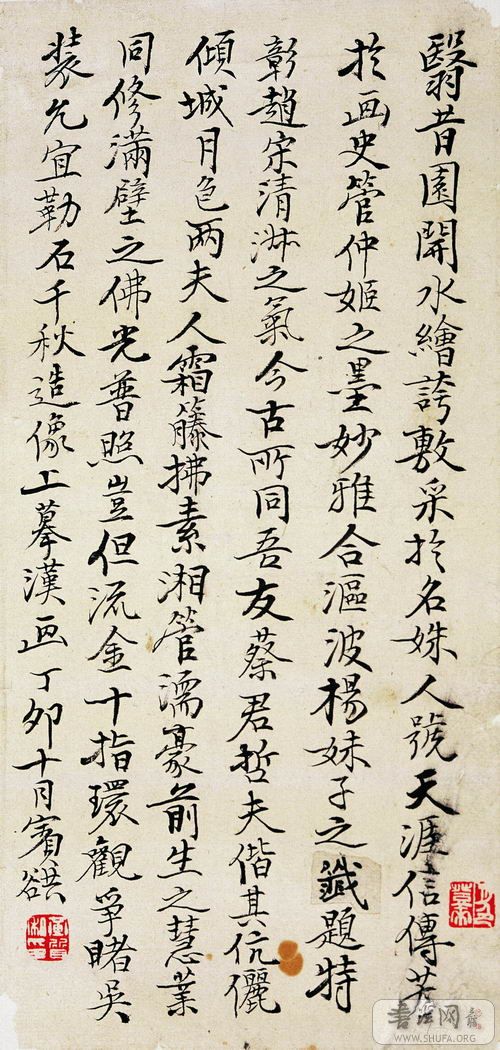 翳昔園開水繪誇敷采於名姝人號天涯信傳芳
於画史管仲姬之墨妙雅合漚波楊妹子之籤題特
彰趙宋清淋之氣今古所同吾友蔡君哲夫偕其伉儷
傾城月色兩夫人霜籐拂素湘管濡豪前生之慧業
同修滿壁之佛光普照豈但流金十指環觀爭睹吳
裝允宜勒石千秋造像上摹漢画丁卯十月賓谼
書法网
WWW.SHUFA.ORG